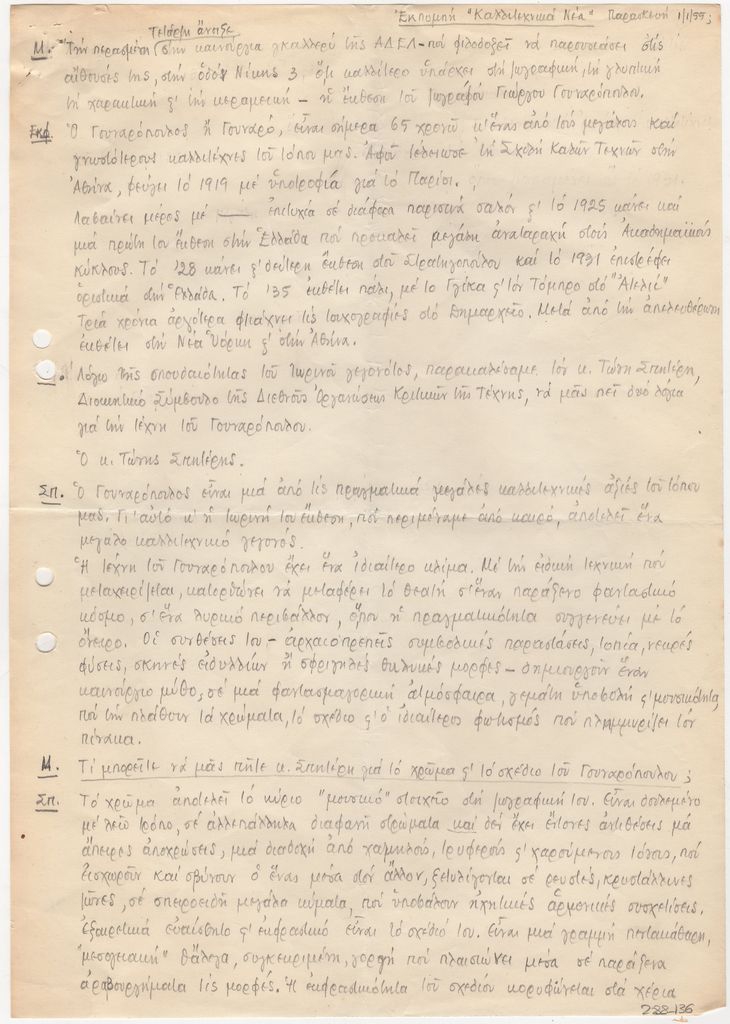 Ἐκπομπή "Καλλιτεχνικά Νέα" Παρασκευή 1/1/55;
Τετάρτη ἄνοιξε
Μ. Τήν περασμένη στήν καινούργια γκαλλερύ τῆς ΑΔΕΛ - πού φιλοδοξεῖ νά παρουσιάσει στίς
αἴθουσές της, στήν ὁδόν Νίκης 3 ὅ,τι καλλίτερο ὑπάρχει στή ζωγραφική, τή γλυπτική
τή χαρακτική ϗ' τήν κεραμεική - ἡ ἔκθεση τοῦ ζωγράφου Γιώργου Γουναρόπουλου.
Εκφ. Ὁ Γουναρόπουλος ἤ Γουναρό, εἶναι σήμερα 65 χρονῶ κ' ἕνας ἀπό τούς μεγάλους καί
γνωστότερους καλλιτέχνες τοῦ τόπου μας. Ἀφοῦ τελειωσε τή Σχολή Καλῶν Τεχνῶν στήν
Ἀθήνα, φεύγει τό 1919 μέ ὑποτροφία γιά τό Παρίσι.
Λαβαίνει μέρος μέ ἐπιτυχία σέ διάφορα παρισινά σαλόν ϗ' τό 1925 κάνει καί
μιά πρώτη του ἔκθεση στήν Ἑλλάδα πού προκαλεῖ μεγάλη ἀναταραχή στούς Ἀκαδημαϊκούς
κύκλους. Τό '28 κάνει ϗ' δεύτερη ἔκθεση στοῦ Στρατηγοπούλου καί τό 1931 ἐπιστρέφει
ὁριστικά στήν Ἑλλάδα. Τό '35 ἐκθέτει πάλι, μέ το Γκίκα ϗ' τόν Τόμπρο στό "Ἀτελιέ"
Τρία χρόνια ἀργότερα φτιάχνει τίς τοιχογραφίες στό Δημαρχεῖο. Μετά ἀπό τήν ἀπελευθέρωση
ἐκθέτει στή Νέα Ὑόρκη ϗ' στήν Ἀθήνα.
Μ. Λόγω τῆς σπουδαιότητας τοῦ τωρινοῦ γεγονότος, παρακαλέσαμε τόν κ. Τώνη Σπητέρη,
Διοικητικό Σύμβουλο τῆς Διεθνοῦς Ὀργανώσεως Κριτικῶν τῆς Τέχνης, νά μᾶς πεῖ δυό λόγια
γιά τήν τέχνη τοῦ Γουναρόπουλου.
Ὁ κ. Τώνης Σπητέρης.
Σπ. Ὁ Γουναρόπουλος εἶναι μιά ἀπό τίς πραγματικά μεγάλες καλλιτεχνικές ἀξίες τοῦ τόπου
μας. Γι' αὐτό κ' ἡ τωρινή του ἔκθεση, πού περιμέναμε ἀπό καιρό, ἀποτελεῖ ἕνα
μεγάλο καλλιτεχνικό γεγονός.
Ἡ τέχνη τοῦ Γουναρόπουλου ἔχει ἕνα ἰδιαίτερο κλίμα. Μέ τήν εἰδική τεχνική πού
μεταχειρίζεται, κατορθώνει νά μεταφέρει τό θεατή σ' ἕναν παράξενο φανταστικό
κόσμο, σ' ἕνα λυρικό περιβάλλον, ὅπου ἡ πραγματικότητα συγγενεύει μέ τό
ὄνειρο. Οἱ συνθέσεις του - ἀρχαιοπρεπεῖς συμβολικές παραστάσεις, τοπία, νεκρές
φύσεις, σκηνές εἰδυλλίων ἤ σφριγηλές θηλυκές μορφές - δημιουργοῦν ἕναν
καινούργιο μύθο, σέ μιά φαντασμαγορική ἀτμόσφαιρα, γεμάτη ὑποβολή ϗ' μουσικότητα,
πού τήν πλάθουν τά χρώματα, τό σχέδιο ϗ' ὁ ἰδιαίτερος φωτισμός πού πλημμυρίζει τόν
πίνακα.
Μ. Τί μπορεῖτε νά μᾶς πῆτε κ. Σπητέρη γιά τό χρῶμα ϗ' τό σχέδιο τοῦ Γουναρόπουλου;
Σπ. Τό χρῶμα ἀποτελεῖ τό κύριο "μουσικό" στοιχεῖο στή ζωγραφική του. Εἶναι δουλεμένο
μέ τέτοιο τρόπο, σέ ἀλλεπάλληλα διαφανῆ στρώματα καί δέν ἔχει ἔντονες ἀντιθέσεις μά
ἄπειρες ἀποχρώσεις, μιά διαδοχή ἀπό χαμηλούς, τρυφερούς ϗ' χαρούμενους τόνους, πού
εἰσχωροῦν καί σβύνουν ὁ ἕνας μέσα στόν ἄλλον, ξετυλίγονται σέ ρευστές, κρυστάλλινες
ζῶνες, σέ σπειροειδῆ μεγάλα κύματα, πού ὑποβάλουν ἠχητικές ἁρμονικές συσχετίσεις.
Ἐξαιρετικά εὐαίσθητο ϗ' ἐκφραστικό εἶναι τό σχέδιό του. Εἶναι μιά γραμμή πεντακάθαρη,
"μεσογειακή" θἄλεγα, συγκεκριμένη, γοργή πού πλαισιώνει μέσα σέ παράξενα
ἀραβουργήματα τίς μορφές. Ἡ ἐκφραστικότητα τοῦ σχεδίου κορυφώνεται στά χέρια
288-136